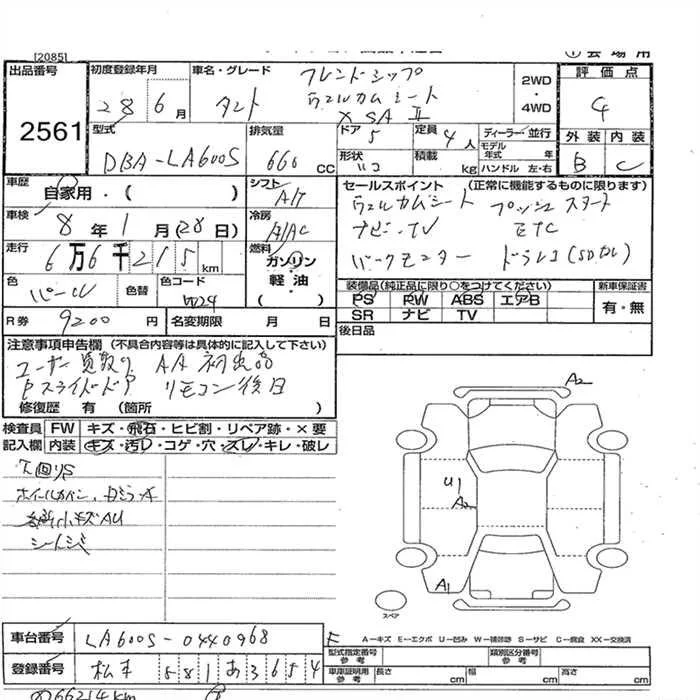 [2085]
出品番号
2561
初度登録年月
28年6月
車名・グレード
フレンドシップ
タント ウェルカムシート
X SAⅡ
2WD
・
4WD
評価点
4
外装 内装
B C
型式
DBA-LA600S
排気量
660cc
ドア 5
定員 4人
ディーラー・並行
モデル年式 年
形状
積載 kg
ハンドル 左・右
車歴
自家用・( )
シフト
A/T
セールスポイント (正常に機能するものに限ります)
ウェルカムシート プッシュスタート
ナビ・TV ETC
バックモニター ドラレコ(SDカレ)
車検
8年1月(28日)
冷房
A/AC
走行
6万6千215km
燃料
ガソリン
軽・油
( )
色
パール
色替
色コード
W24
装備品(純正品に限り○をつけてください)
PS PW ABS エアB
SR ナビ TV
新車保証書
有・無
R券 9200円
名変期限 月 日
後日品
注意事項申告欄 (不具合内容等は具体的に記入して下さい)
ユーザー買取り AA初出品
Pスライドドア リモコン後日
修復歴 有 (箇所 )
検査員記入欄
FW キズ・飛石・ヒビ割・リペア跡・×要
内装 キズ・汚レ・コゲ・穴・スレ・キレ・破レ
下回りS
ホイールカバー、
各所小キズAU
シートシミ
A2
U1
A2
A1
スペア
車台番号 LA600S-0440968
A-キズ E-エクボ U-凹み W-補修跡 S-サビ C-腐食 XX-交換済
登録番号 松本 581 あ 3654
型式指定番号 参考
類別区分番号 参考
車庫証明用 参考
長さ 幅 高さ
66214km